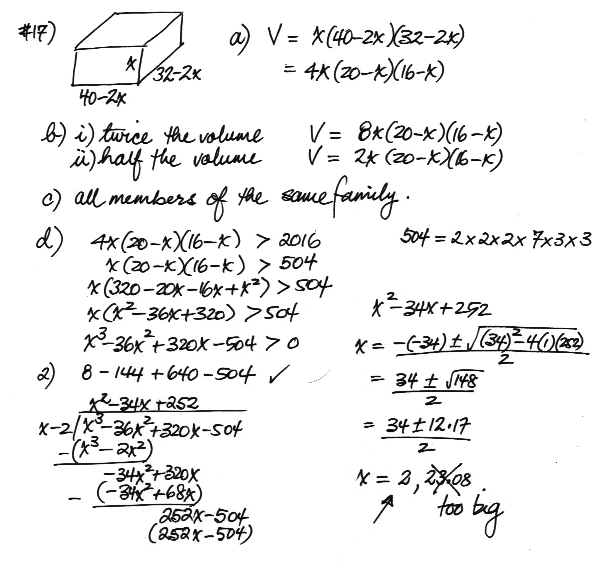 #17)
x
32-2x
40-2x
a) V = x(40-2x)(32-2x)
= 4x(20-x)(16-x)
b) i) twice the volume V = 8x(20-x)(16-x)
ii) half the volume V = 2x(20-x)(16-x)
c) all members of the same family.
d) 4x(20-x)(16-x) > 2016
x(20-x)(16-x) > 504
x(320-20x-16x+x²) > 504
x(x²-36x+320) > 504
x³-36x²+320x-504 > 0
2) 8-144+640-504 ✓
x²-34x+252
x-2 x³-36x²+320x-504
-(x³-2x²)
-34x²+320x
- (-34x²+68x)
252x-504
(252x-504)
504 = 2x2x2x7x3x3
x²-34x+252
x = -(-34) ± √(34)²-4(1)(252)
2
= 34 ± √148
2
= 34 ± 12.17
2
x = 2, 23.08
too big